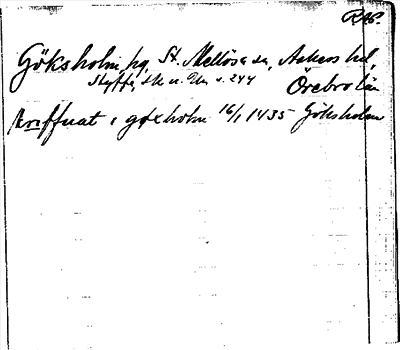 RAp.
Göksholm, hg, St. Mellösa sn, Askers hd,
Styffe, Sk u. Un s. 244 Örebro län
scriffuat i gøxholm 16/1 1435 Göksholm